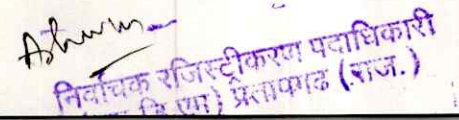 निर्वाचक रजिस्ट्रीकरण पदाधिकारी
प्रतापगढ (राज.)